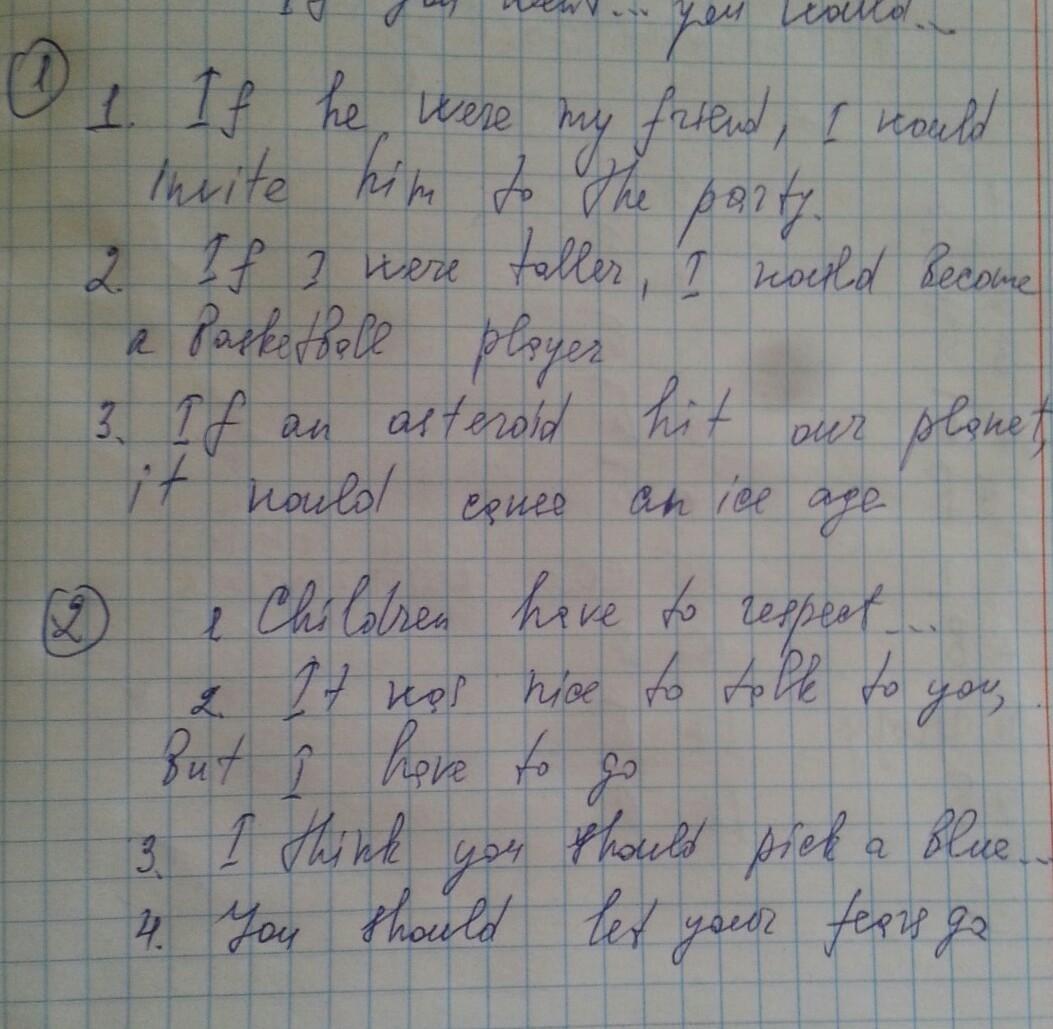 If you went... you would...
1
1. If he were my friend, I would
invite him to the party.
2. If I were taller, I would become
a basketball player
3. If an asteroid hit our planet,
it would cause an ice age
2
1 Children have to respect...
2. It was nice to talk to you,
But I have to go
3. I think you should pick a blue...
4. You should let your fears go